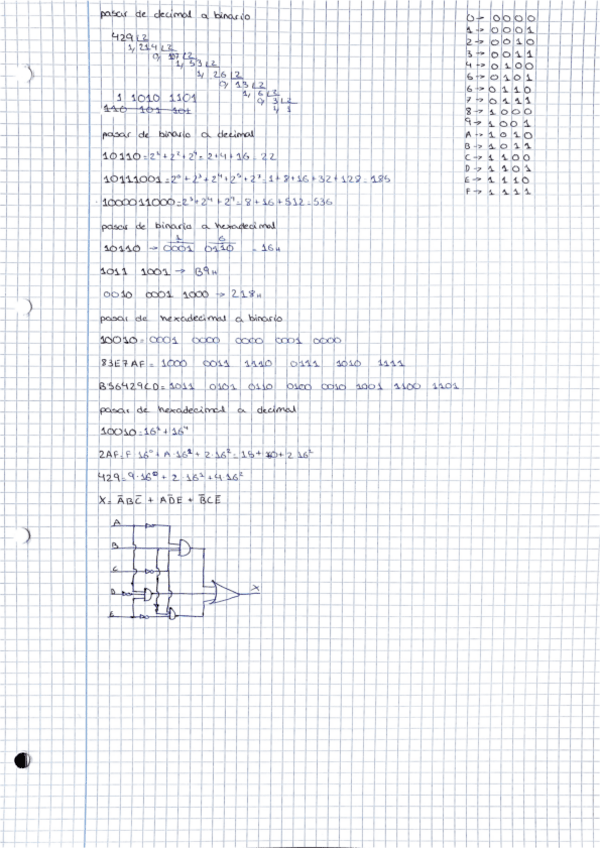 pasar de decimal a binario
429 2
1 214 2
0 107 2
1 53 2
1 26 2
0 13 2
1 6 2
0 3 2
1 1
1 1010 1101
110 101 101
pasar de binario a decimal
10110=2¹+2²+2⁴=2+4+16=22
10111001=2⁰+2³+2⁴+2⁵+2⁷=1+8+16+32+128=185
1000011000=2³+2⁴+2⁹=8+16+512=536
pasar de binario a hexadecimal
1 6
10110 → 0001 0110 = 16H
1011 1001 → B9H
0010 0001 1000 → 218H
pasar de hexadecimal a binario
10010=0001 0000 0000 0001 0000
83E7AF=1000 0011 1110 0111 1010 1111
B56429CD=1011 0101 0110 0100 0010 1001 1100 1101
pasar de hexadecimal a decimal
10010=16¹+16⁴
2AF=F·16⁰+A·16¹+2·16²=
429=9·16⁰+2·16¹+4·16²
X= ĀBC̄ + AD̄E + B̄CĒ
A
B
C
D
E
X
0→ 0000
1→ 0001
2→ 0010
3→ 0011
4→ 0100
5→ 0101
6→ 0110
7→ 0111
8→ 1000
9→ 1001
A→ 1010
B→ 1011
C→ 1100
D→ 1101
E→ 1110
F→ 1111